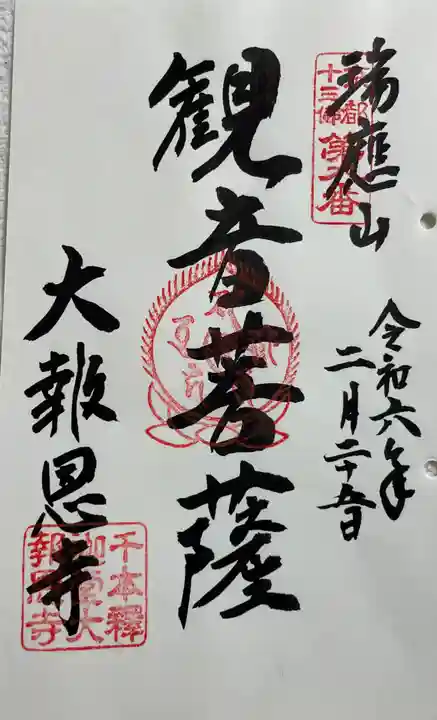 瑞應山
令和六年
二月二十五日
観音菩薩
大報恩寺
千本釋
迦堂大
報恩寺